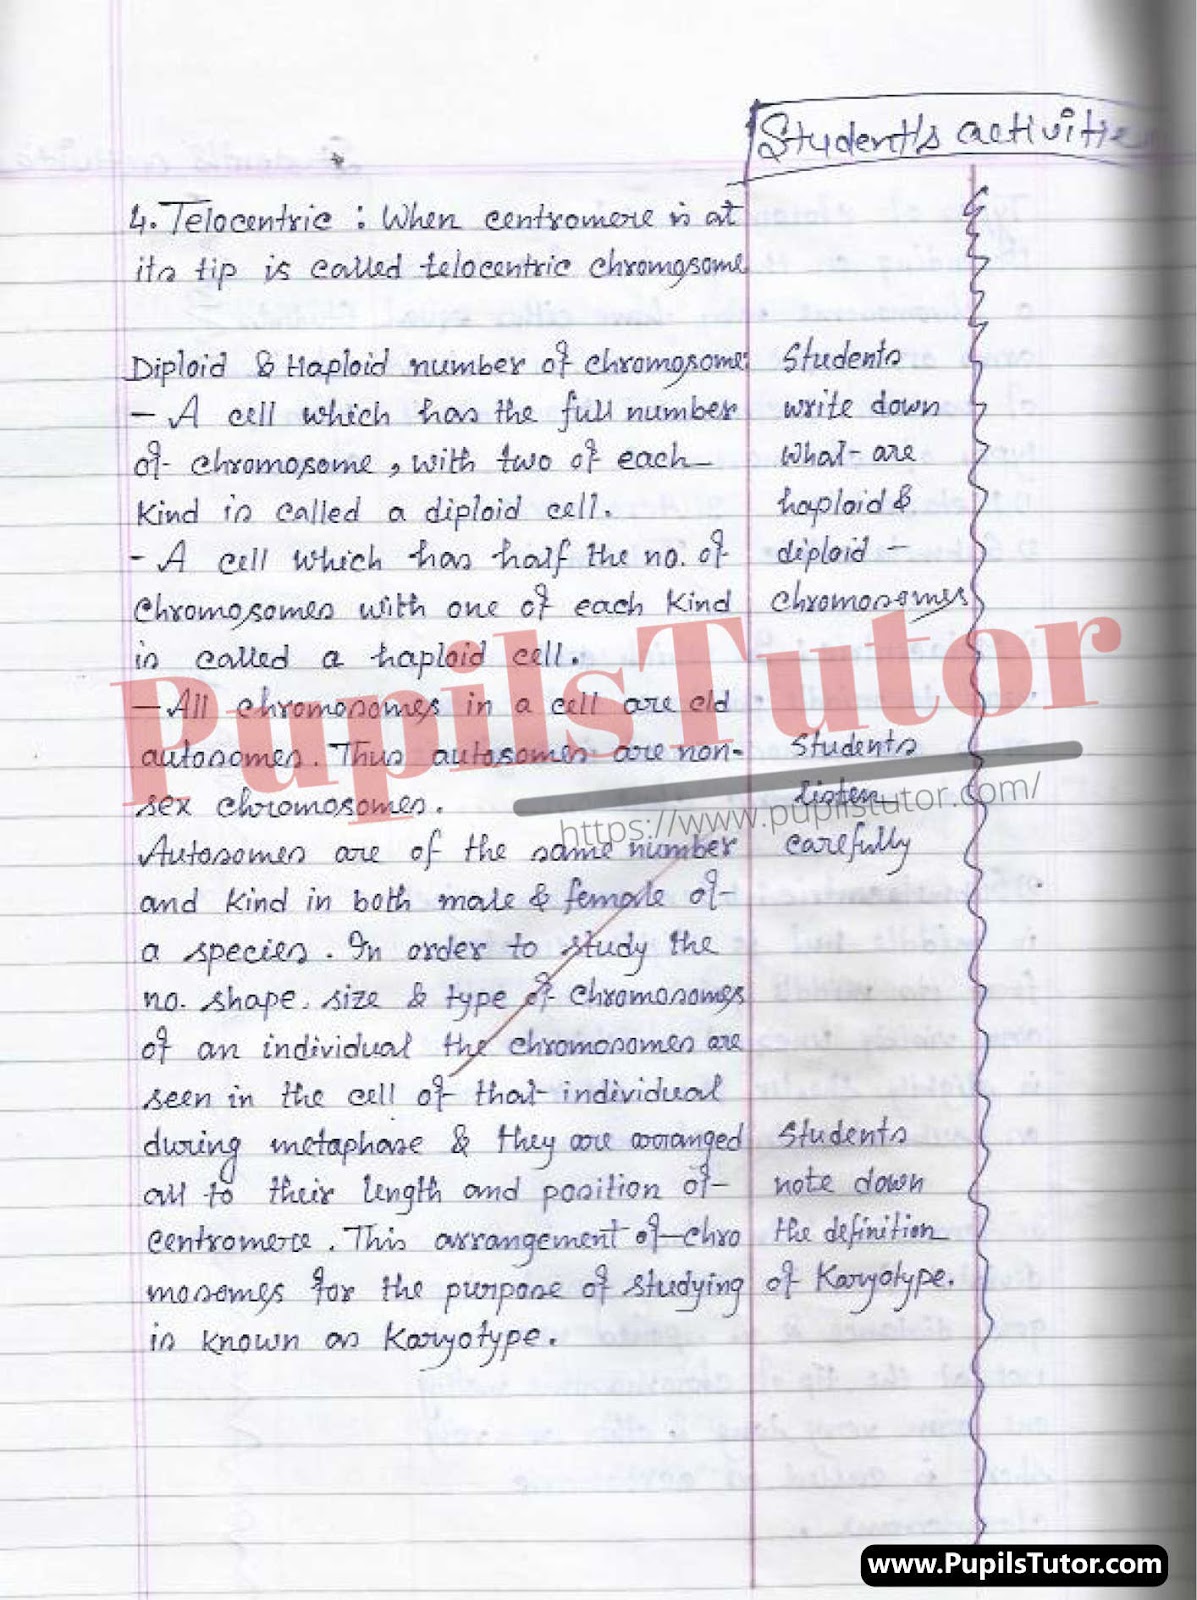 Student's activities
4. Telocentric : When centromere is at
its tip is called telocentric chromosome
Diploid & Haploid number of chromosome:
- A cell which has the full number
of chromosome, with two of each
kind is called a diploid cell.
- A cell which has half the no. of
chromosomes with one of each kind
is called a haploid cell.
- All chromosomes in a cell are cld
autosomes. Thus autosomes are non-
sex chromosomes.
Autosomes are of the same number
and kind in both male & female of
a species. In order to study the
no. shape, size & type of chromosomes
of an individual the chromosomes are
seen in the cell of that individual
during metaphase & they are arranged
all to their length and position of
centromere. This arrangement of chro
mosomes for the purpose of studying
is known as Karyotype.
Students
write down
what are
haploid &
diploid -
chromosomes
Students
listen
carefully
Students
note down
the definition
of Karyotype.
PupilsTutor
https://www.pupilstutor.com/
www.PupilsTutor.com